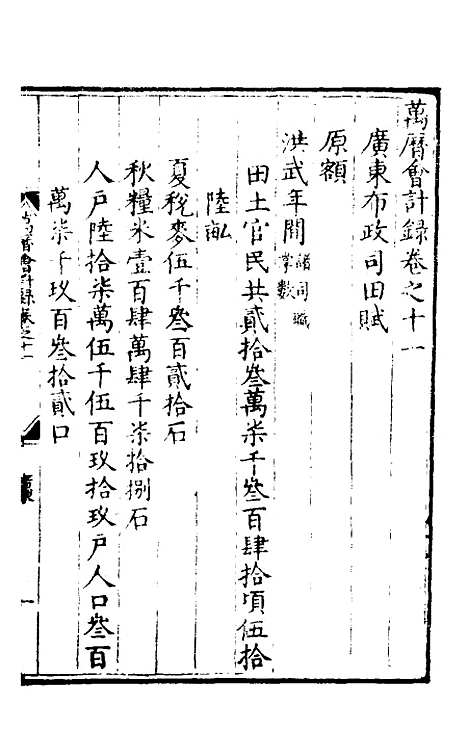 萬曆會計錄卷之十一
廣東布政司田賦
原額
洪武年間諸司職掌數
田土官民共貳拾叄萬柒千叄百肆拾頃伍拾
陸畝
夏稅麥伍千叄百貳拾石
秋糧米壹百肆萬肆千柒拾捌石
人戶陸拾柒萬伍千伍百玖拾玖戶人口叄百
萬柒千玖百叄拾貳口
萬曆會計錄卷之十一
廣東
一